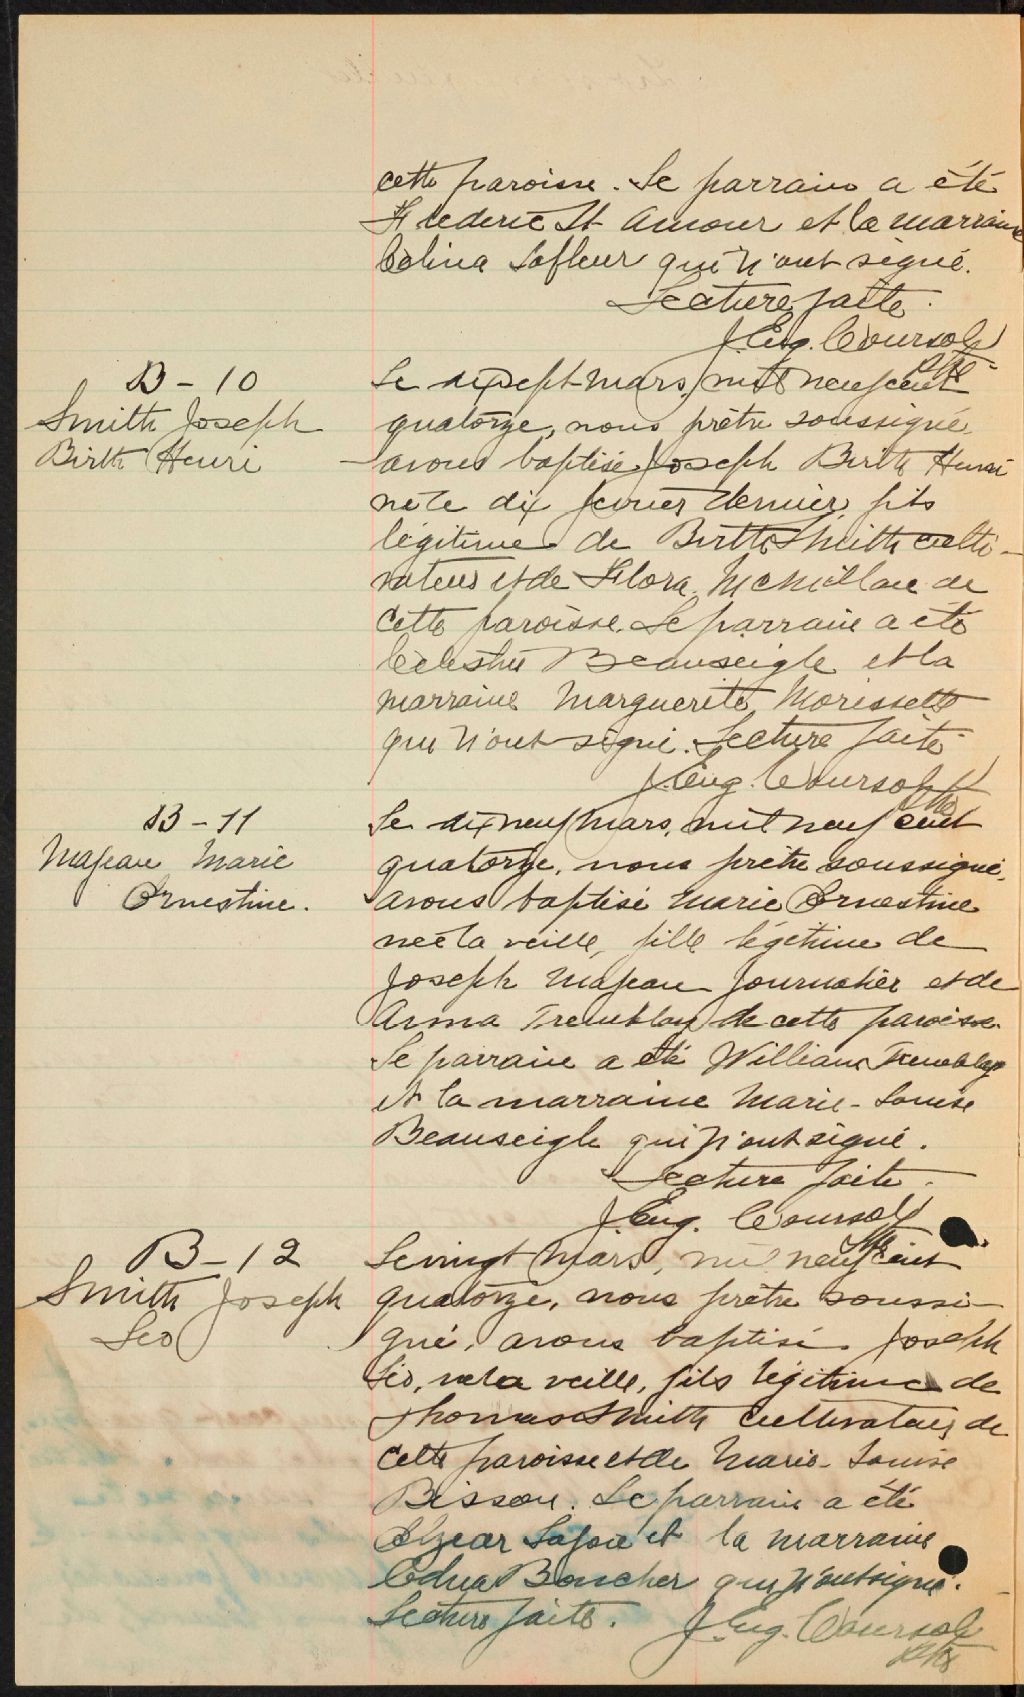 cette paroisse. Le parrain a été
Frederic St Amour et la marraine
Célina Lafleur qui n'ont signé.
Lecture faite.
J. Eug. Coursol
ptre
B-10
Smith Joseph
Birth Henri
Le dixsept mars, mil neuf cent
quatorze, nous prêtre soussigné,
avons baptisé Joseph Birth Henri
né le dix fevrier dernier, fils
légitime de Birth Smith culti-
vateur et de Flora McMillan de
cette paroisse. Le parrain a été
Célestin Beauseigle et la
marraine Marguerite Morissette
qui n'ont signé. Lecture faite
J. Eug. Coursol
ptre
B-11
Mapeau Marie
Ernestine.
Le dix neuf mars, mil neuf cent
quatorze, nous prêtre soussigné,
avons baptisé Marie Ernestine
née la veille, fille légitime de
Joseph Mapeau journalier et de
Anna Tremblay de cette paroisse.
Le parrain a été William Tremblay
et la marraine Marie-Louise
Beauseigle qui n'ont signé.
Lecture faite.
J. Eug. Coursol
ptre
B-12
Smith Joseph
Léo
Le vingt mars, mil neuf cent
quatorze, nous prêtre soussi-
gné, avons baptisé Joseph
Léo, né la veille, fils légitime de
Thomas Smith cultivateur de
cette paroisse et de Marie-Louise
Bisson. Le parrain a été
Elzear et la marraine
Edna Boucher qui n'ont signé.
Lecture faite. J. Eug. Coursol
ptre